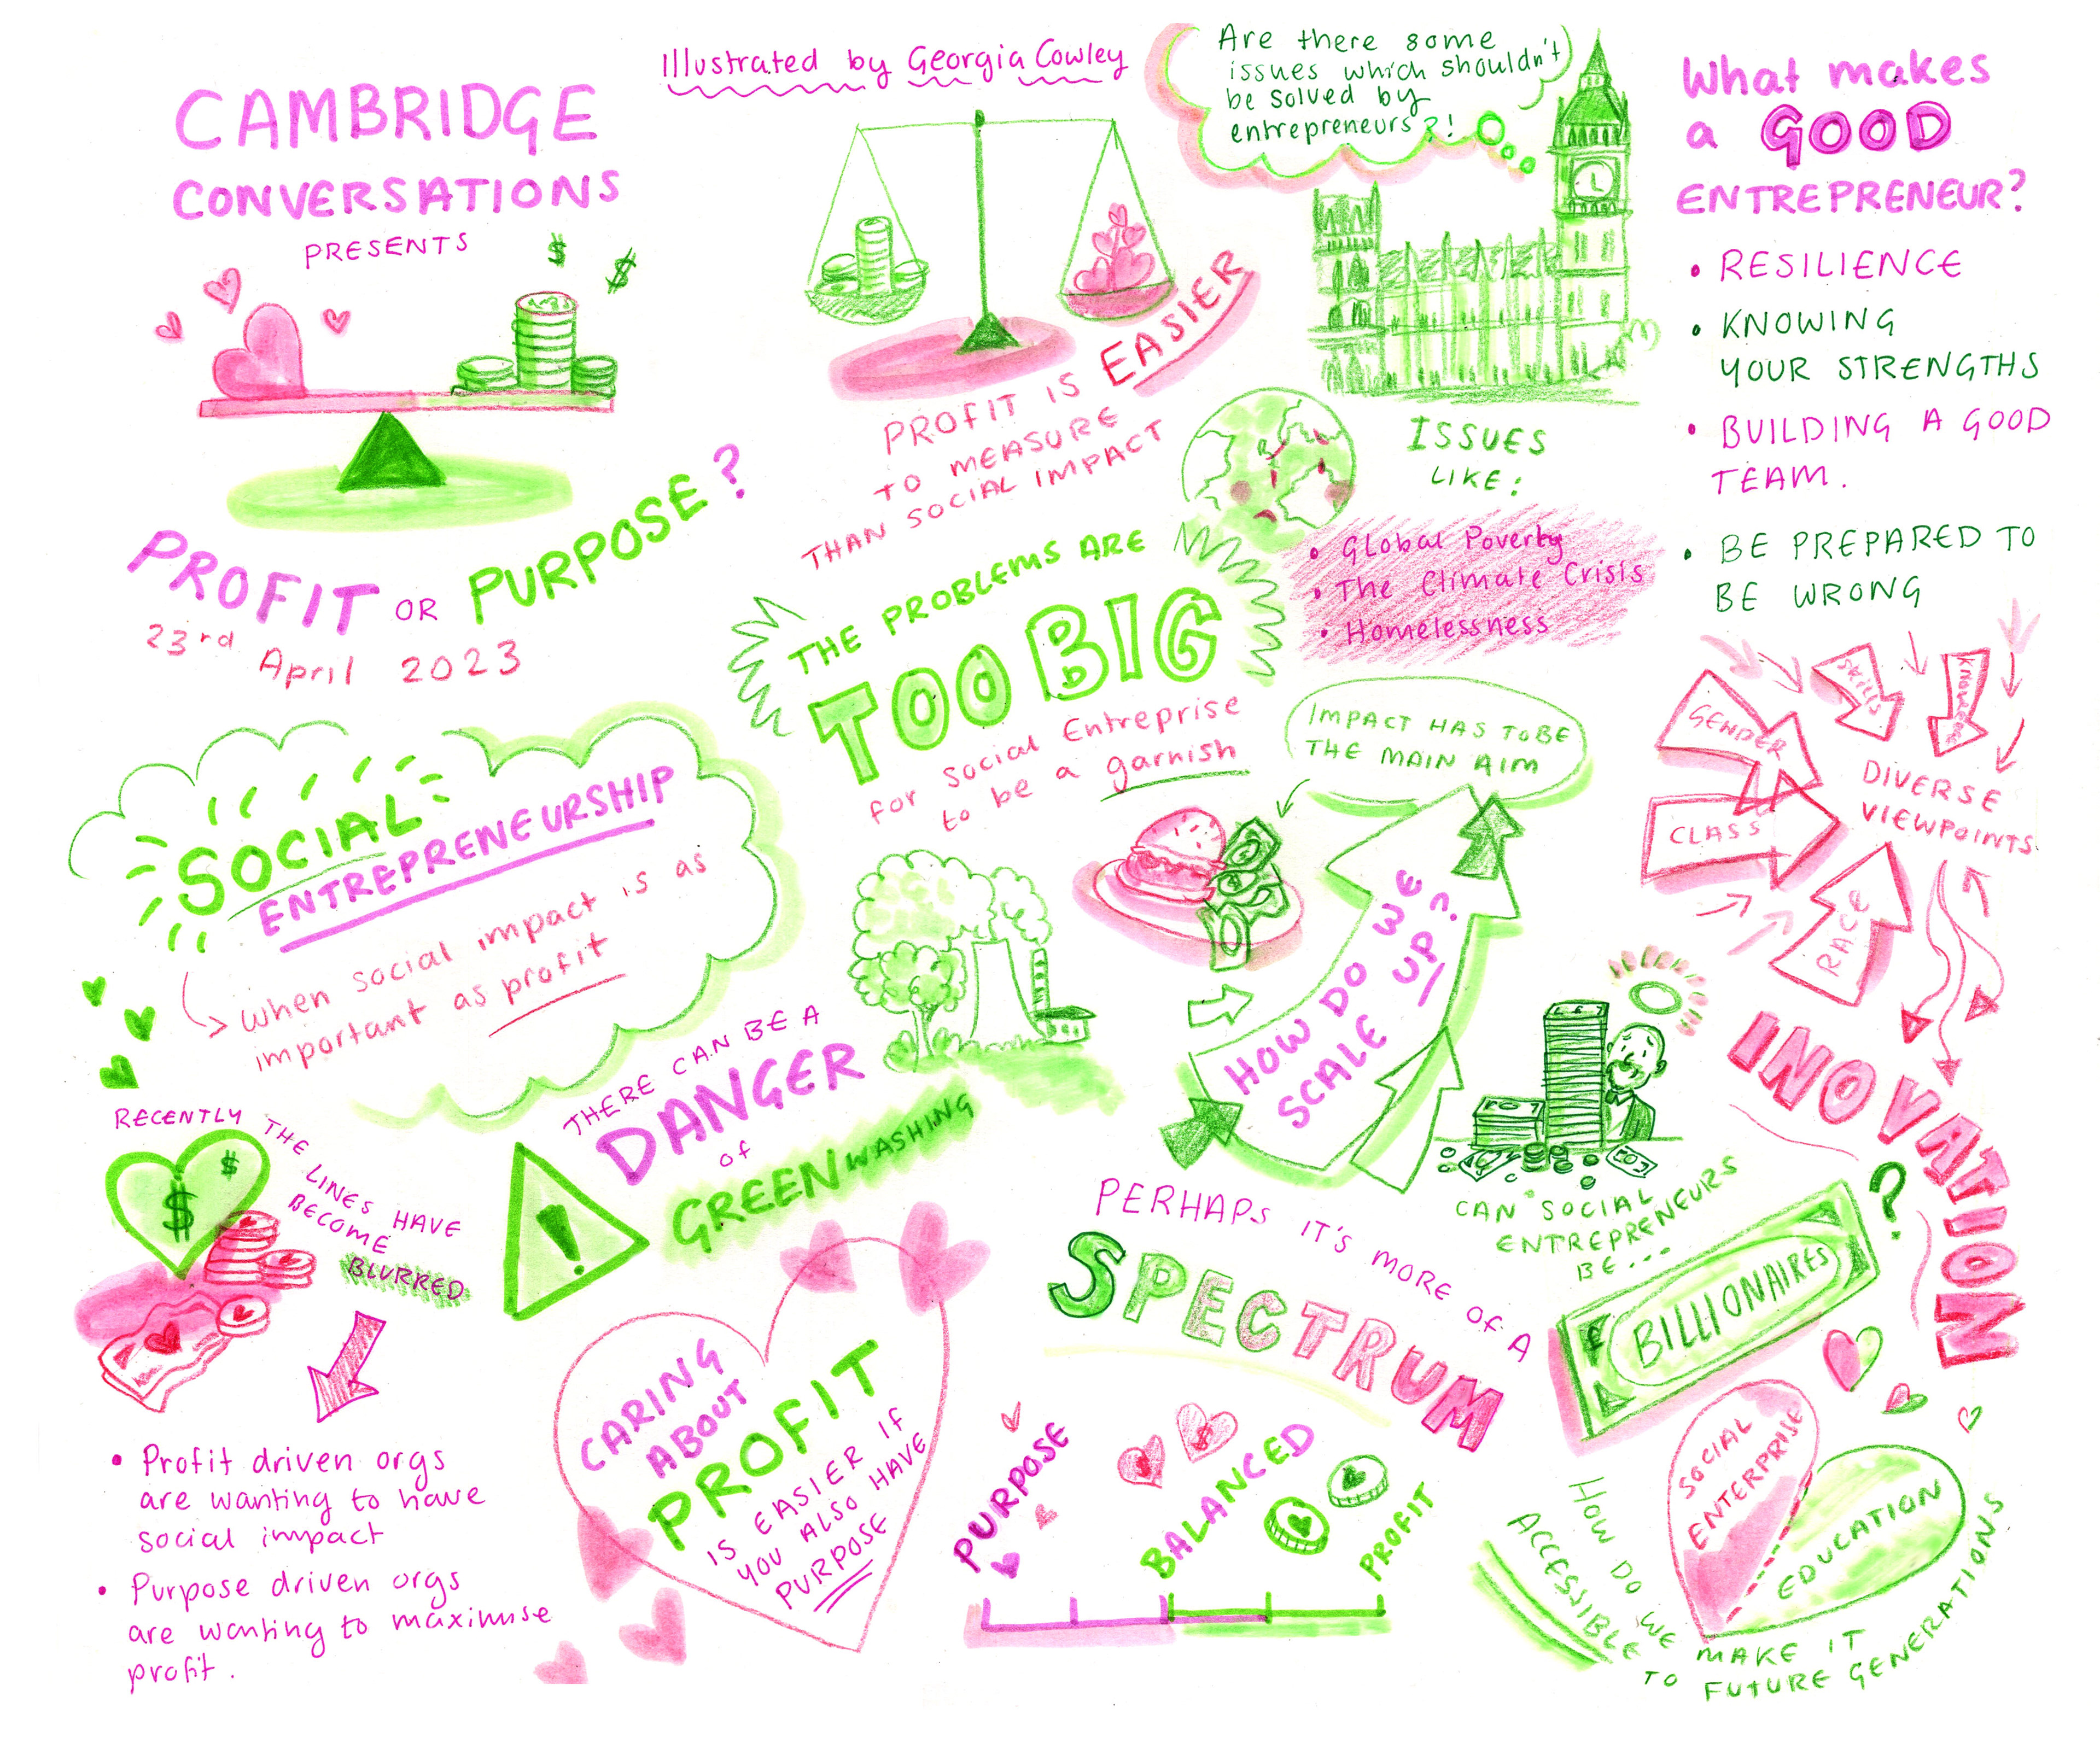 CAMBRIDGE
CONVERSATIONS
PRESENTS
$ $
PROFIT OR PURPOSE?
23rd April 2023
Illustrated by Georgia Cowley
PROFIT IS EASIER
TO MEASURE
THAN SOCIAL IMPACT
Are there some
issues which shouldn't
be solved by
entrepreneurs?!
ISSUES
LIKE:
• Global Poverty
• The Climate Crisis
• Homelessness
What makes
a GOOD
ENTREPRENEUR?
• RESILIENCE
• KNOWING
YOUR STRENGTHS
• BUILDING A GOOD
TEAM.
• BE PREPARED TO
BE WRONG
THE PROBLEMS ARE
TOO BIG
for Social Entreprise
to be a garnish
IMPACT HAS TO BE
THE MAIN AIM
HOW DO WE
SCALE UP!
GENDER
SKILLS
CLASS
RACE
DIVERSE
VIEWPOINTS
INOVATION
SOCIAL
ENTREPRENEURSHIP
When social impact is as
important as profit
THERE CAN BE A
DANGER
of
GREENWASHING
!
RECENTLY THE LINES HAVE
BECOME
BLURRED
$ $
• Profit driven orgs
are wanting to have
social impact
• Purpose driven orgs
are wanting to maximise
profit.
CARING
ABOUT
PROFIT
IS EASIER IF
YOU ALSO HAVE
PURPOSE
PERHAPS IT'S MORE OF A
SPECTRUM
PURPOSE
BALANCED
PROFIT
CAN SOCIAL
ENTREPRENEURS
BE...
BILLIONAIRES
?
SOCIAL
ENTERPRISE
EDUCATION
HOW DO WE MAKE IT
ACCESSIBLE TO FUTURE GENERATIONS